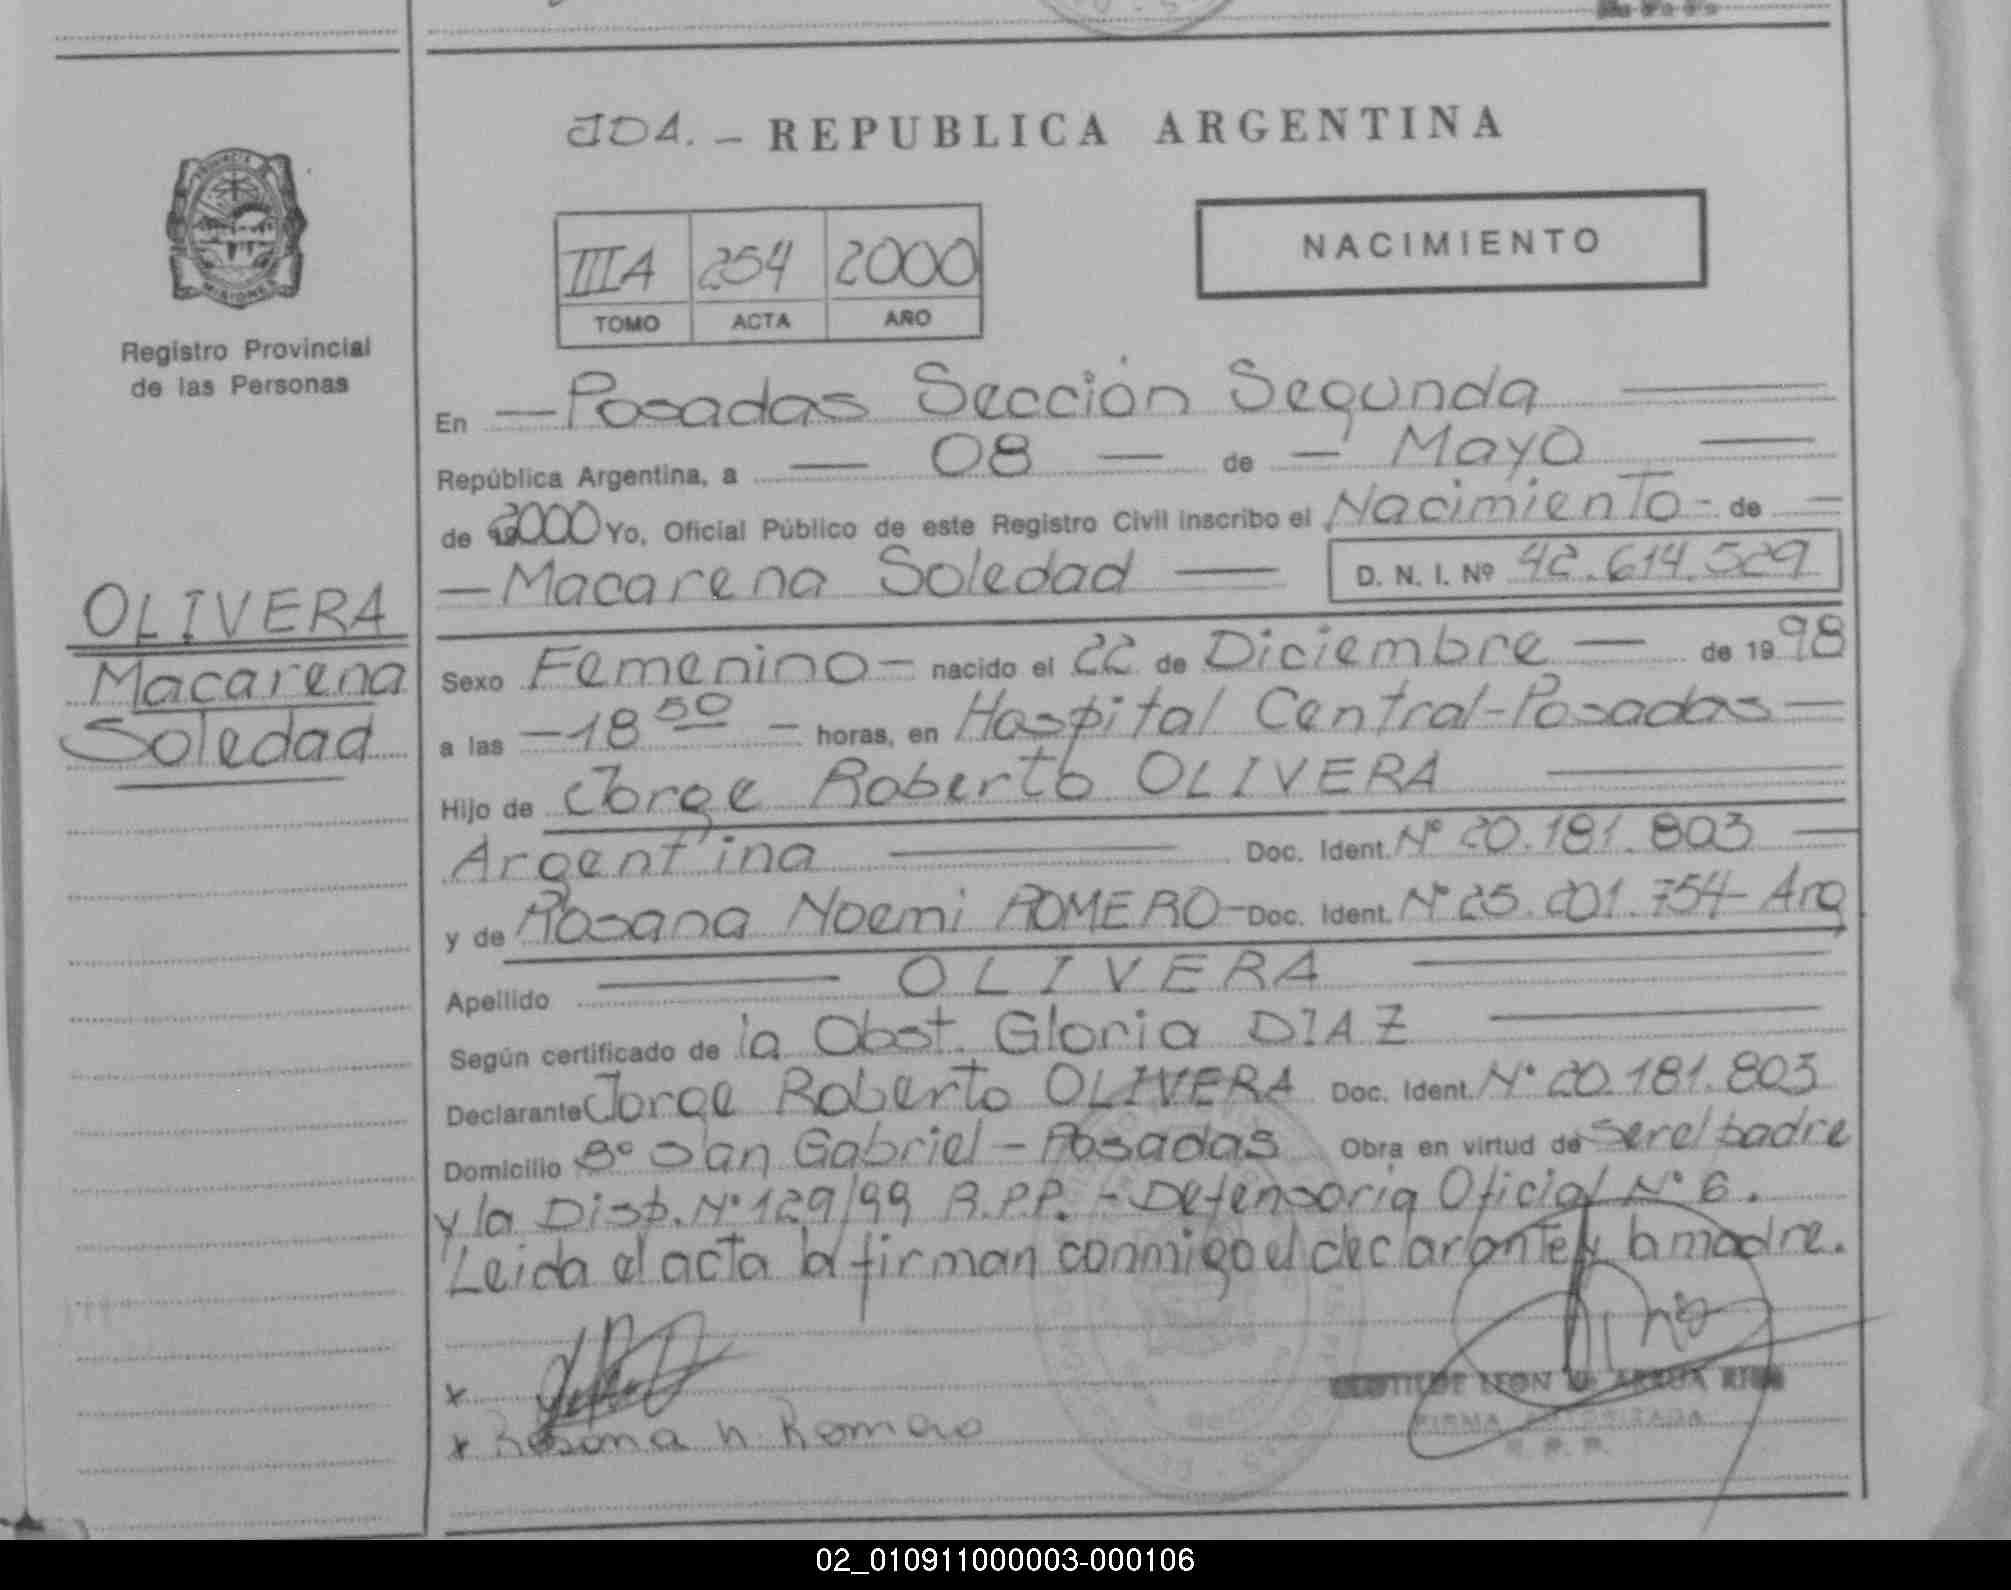 JDA. - REPUBLICA ARGENTINA
NACIMIENTO
IIIA 254 2000
TOMO ACTA AÑO
MISIONES
Registro Provincial
de las Personas
OLIVERA
Macarena
Soledad
En - Posadas Sección Segunda
República Argentina, a - 08 - de - Mayo
de 2000 Yo, Oficial Público de este Registro Civil inscribo el Nacimiento - de -
- Macarena Soledad - D. N. I. Nº 42.614.529
Sexo Femenino - nacido el 22 de Diciembre - de 19 98
a las - 18 50 - horas, en Hospital Central - Posadas -
Hijo de Jorge Roberto OLIVERA
Argentina Doc. Ident. Nº 20.181.803
y de Rosana Noemi ROMERO - Doc. Ident. Nº 25.201.754 - Arg
Apellido OLIVERA
Según certificado de la Obst. Gloria DIAZ
Declarante Jorge Roberto OLIVERA Doc. Ident. Nº 20.181.803
Domicilio Bº San Gabriel - Posadas Obra en virtud de ser el padre
y la Disp. Nº 129/99 R.P.P. - Defensoria Oficial Nº 6.
Leida el acta la firman conmigo el declarante y la madre.
x
x Rosana N. Romero
LEON
FIRMA AUTORIZADA
R. P. P.
02_010911000003-000106